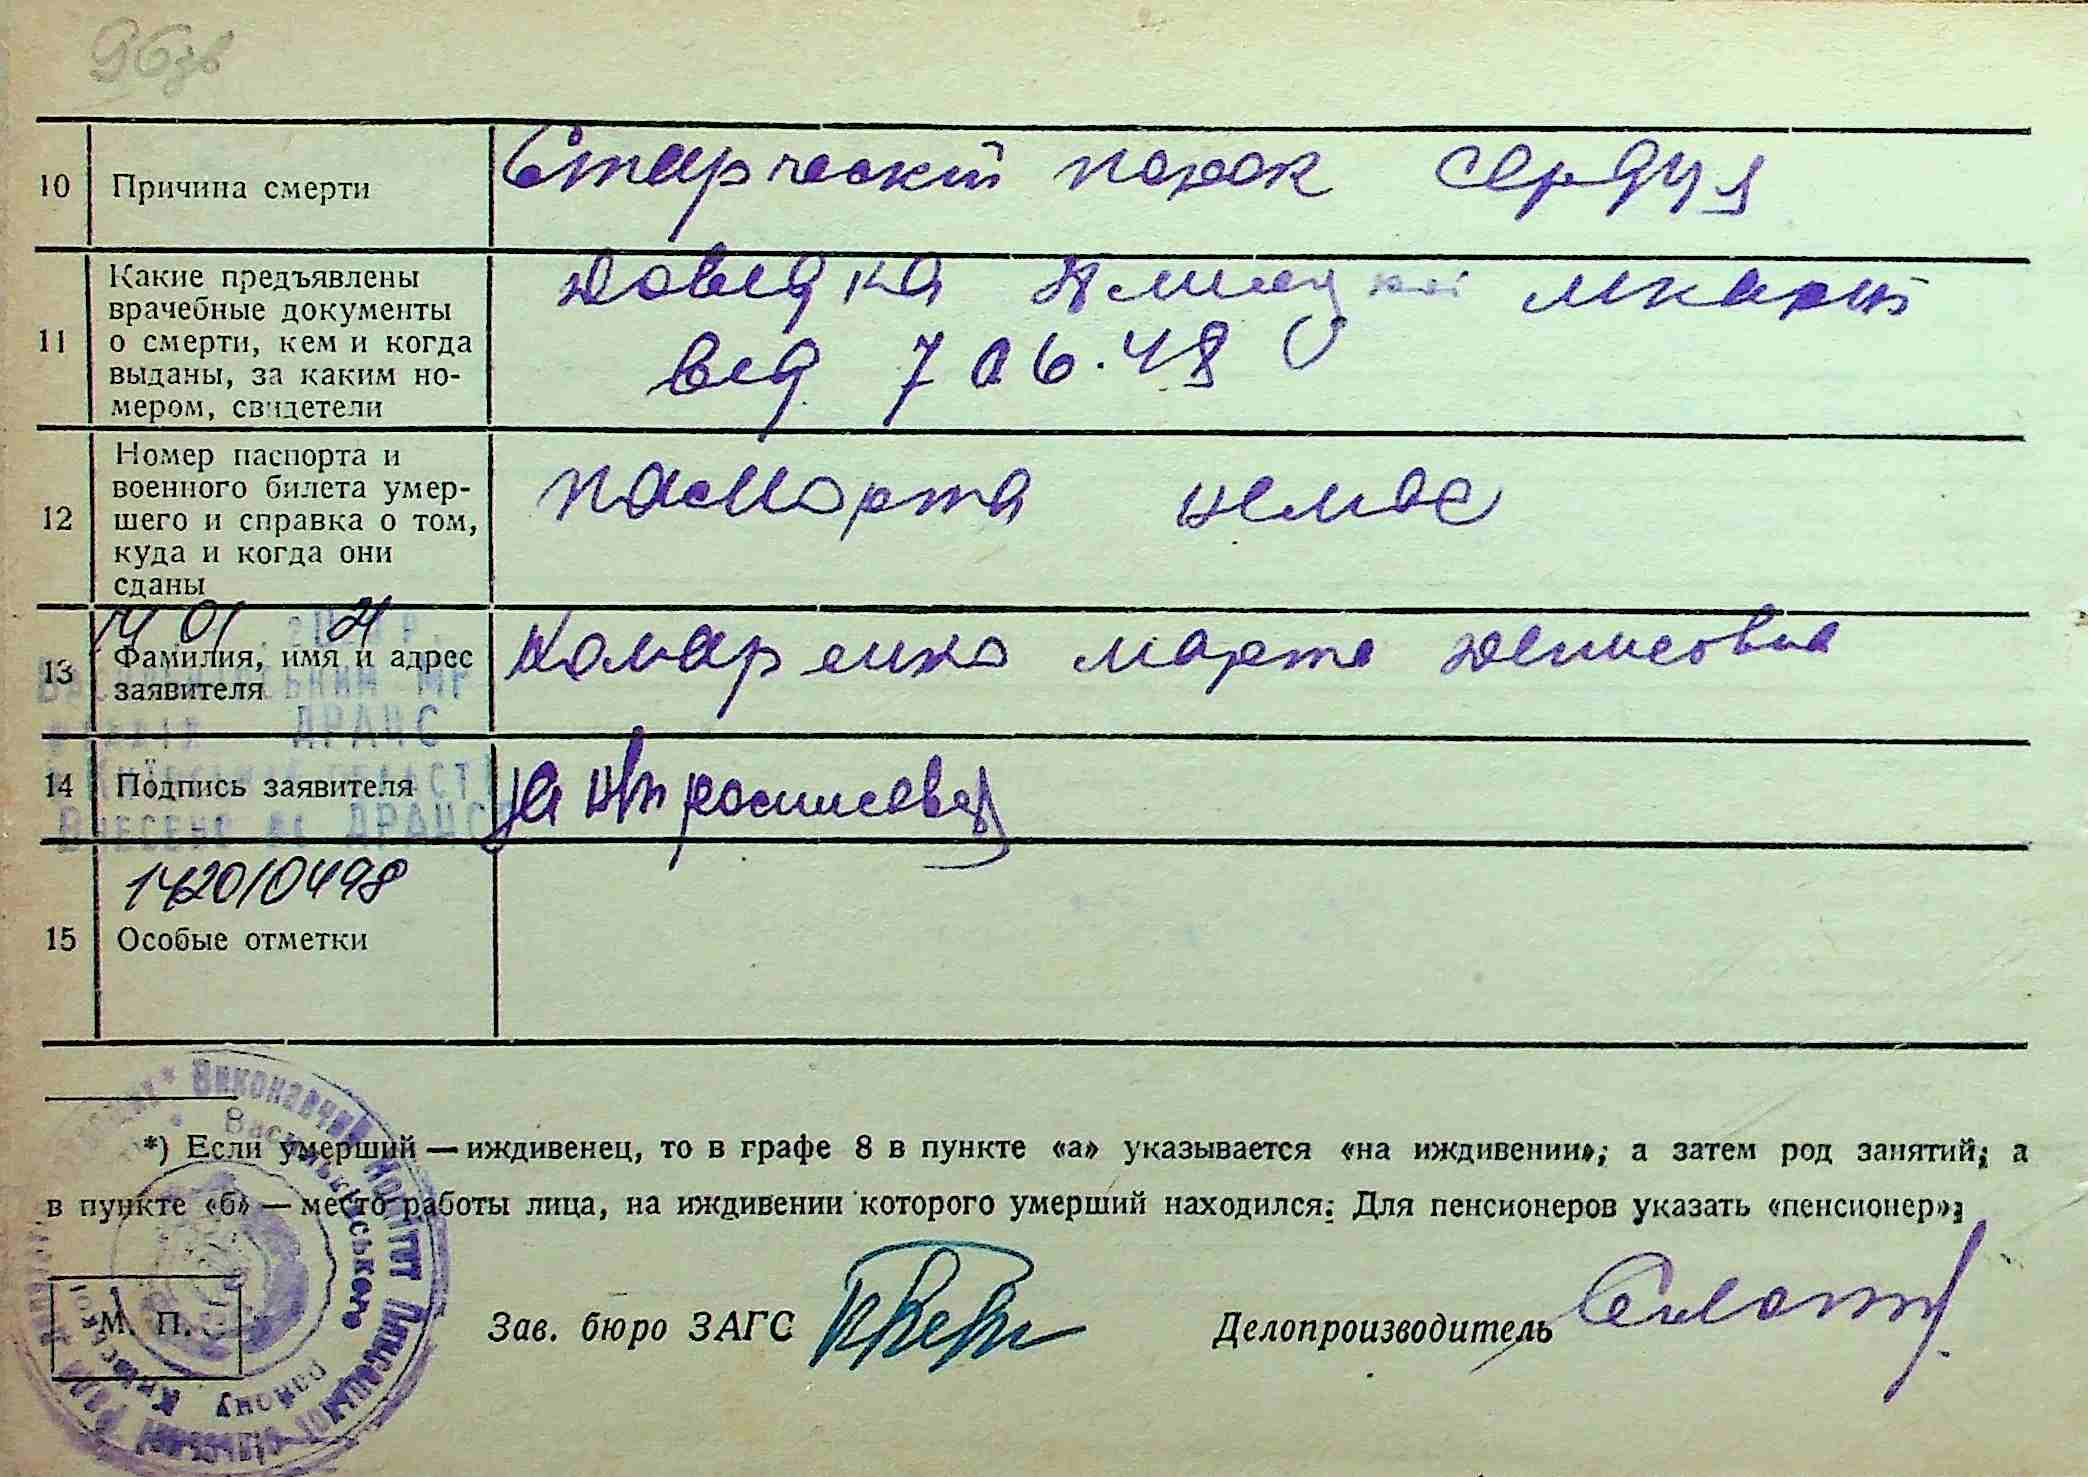 10 Причина смерти
Старческий порок сердця
11 Какие предъявлены
врачебные документы
о смерти, кем и когда
выданы, за каким но-
мером, свидетели
довідка лікарні
від 7 06.48
12 Номер паспорта и
военного билета умер-
шего и справка о том,
куда и когда они
сданы
паспорта немає
14 01 21
13 Фамилия, имя и адрес
заявителя
Комаренко Марта Денисовна
ДРАЦС
14 Подпись заявителя
Внесено до ДРАЦС
142010498
15 Особые отметки
*) Если умерший — иждивенец, то в графе 8 в пункте «а» указывается «на иждивении»; а затем род занятий; а
в пункте «б» — место работы лица, на иждивении которого умерший находился: Для пенсионеров указать «пенсионер»;
Виконавчий Комітет
Васильківського району
М. П.
Зав. бюро ЗАГС
Делопроизводитель